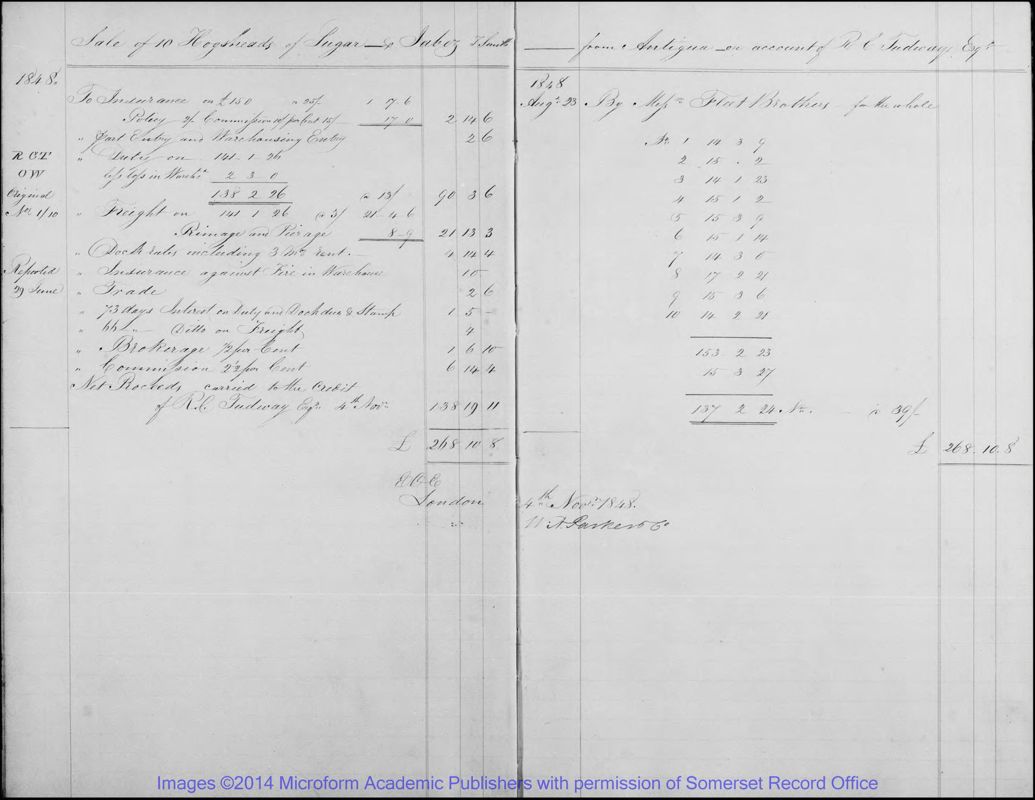 Sale of 10 Hogsheads of Sugar Jabez T Smith from Antigua on account of R C Tudway Esqr
1848
To Insurance on £150 a 25/ 1 7 6
Policy 2/ Commission ½ per Cent 15/ 17 0 2 14 6
" Part Entry and Warehousing Entry 2 6
R C T
OW
Original
Nos 1/10
" Duty on 141 - 1 - 26
less loss in Warehse 2 3 0
138 2 26 a 13/ 90 3 6
" Freight on 141 1 26 a 3/ 21 4 6
Primage and Pierage 8 - 9 21 13 3
" Dock rates including 3 Mos rent 4 14 4
Reported
29 June
" Insurance against Fire in Warehouse 10 -
" Trade 2 6
" 73 days Interest on Duty and Dock dues & Stamp 1 5 -
" 66 " Ditto on Freight 4
" Brokerage ½ per Cent 1 6 10
" Commission 2½ per Cent 6 14 4
Net Proceeds carried to the Credit
of R.C. Tudway Esqr 4th Novr 138 19 11
£ 268 10 8
E.O.E
London
1848
Augt 23 By Messrs Fleet Brothers for the whole
No 1 14 3 9
2 15 . 2
3 14 1 23
4 15 1 2
5 15 3 9
6 15 1 14
7 14 3 0
8 17 2 21
9 15 3 6
10 14 2 21
153 2 23
15 3 27
137 2 24 Nt. a 39/-
£ 268 . 10 . 8
4th Novr 1848.
Parker & Co
Images ©2014 Microform Academic Publishers with permission of Somerset Record Office